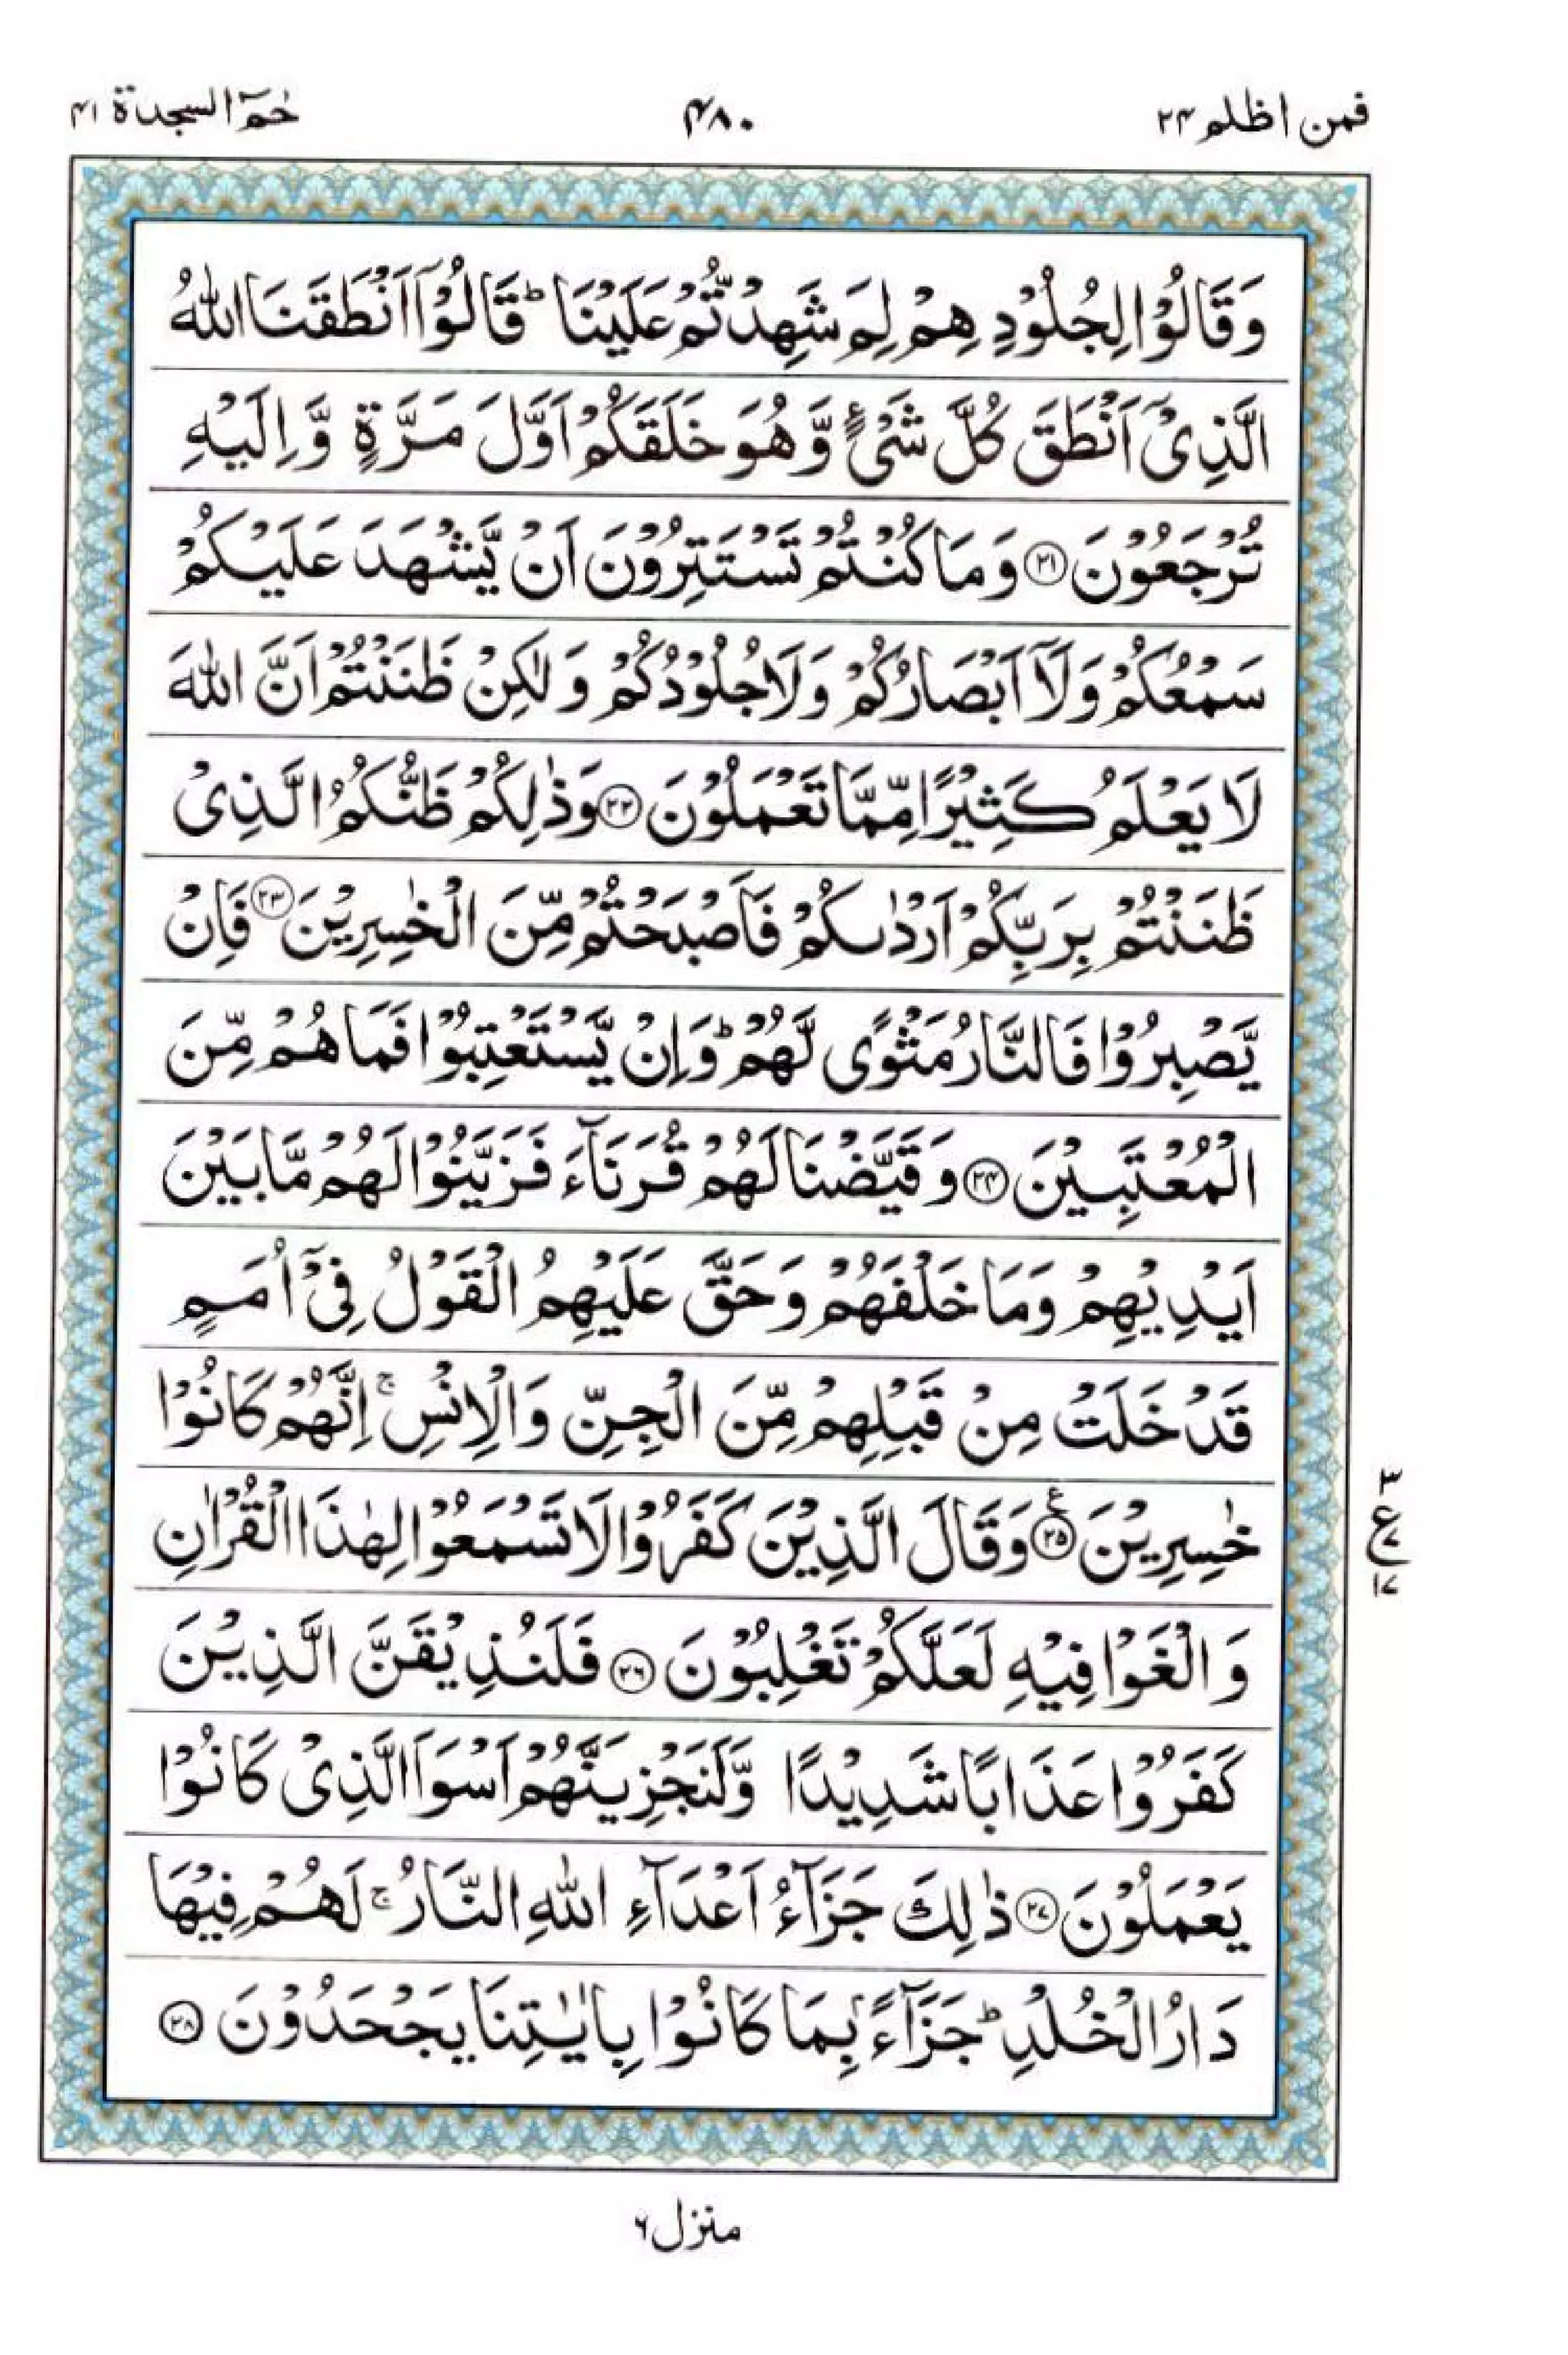 فمن اظلم ۲۴
۴۸۰
حٰمٓ السجدة ۴۱
وَقَالُوْا لِجُلُوْدِهِمْ لِمَ شَهِدْتُّمْ عَلَيْنَا ؕ قَالُوْۤا اَنْطَقَنَا اللّٰهُ
الَّذِیْۤ اَنْطَقَ كُلَّ شَیْءٍ وَّهُوَ خَلَقَكُمْ اَوَّلَ مَرَّةٍ وَّ اِلَيْهِ
تُرْجَعُوْنَ ۲۱ وَمَا كُنْتُمْ تَسْتَتِرُوْنَ اَنْ يَّشْهَدَ عَلَيْكُمْ
سَمْعُكُمْ وَلَاۤ اَبْصَارُكُمْ وَلَا جُلُوْدُكُمْ وَ لٰكِنْ ظَنَنْتُمْ اَنَّ اللّٰهَ
لَا يَعْلَمُ كَثِيْرًا مِّمَّا تَعْمَلُوْنَ ۲۲ وَذٰلِكُمْ ظَنُّكُمُ الَّذِیْ
ظَنَنْتُمْ بِرَبِّكُمْ اَرْدٰىكُمْ فَاَصْبَحْتُمْ مِّنَ الْخٰسِرِيْنَ ۲۳ فَاِنْ
يَّصْبِرُوْا فَالنَّارُ مَثْوًى لَّهُمْ ؕ وَاِنْ يَّسْتَعْتِبُوْا فَمَا هُمْ مِّنَ
الْمُعْتَبِيْنَ ۲۴ وَقَيَّضْنَا لَهُمْ قُرَنَآءَ فَزَيَّنُوْا لَهُمْ مَّا بَيْنَ
اَيْدِيْهِمْ وَمَا خَلْفَهُمْ وَحَقَّ عَلَيْهِمُ الْقَوْلُ فِیْۤ اُمَمٍ
قَدْ خَلَتْ مِنْ قَبْلِهِمْ مِّنَ الْجِنِّ وَالْاِنْسِ ۚ اِنَّهُمْ كَانُوْا
خٰسِرِيْنَ ۲۵ ع وَقَالَ الَّذِيْنَ كَفَرُوْا لَا تَسْمَعُوْا لِهٰذَا الْقُرْاٰنِ
وَالْغَوْا فِيْهِ لَعَلَّكُمْ تَغْلِبُوْنَ ۲۶ فَلَنُذِيْقَنَّ الَّذِيْنَ
كَفَرُوْا عَذَابًا شَدِيْدًا وَّلَنَجْزِيَنَّهُمْ اَسْوَاَ الَّذِیْ كَانُوْا
يَعْمَلُوْنَ ۲۷ ذٰلِكَ جَزَآءُ اَعْدَآءِ اللّٰهِ النَّارُ ۚ لَهُمْ فِيْهَا
دَارُ الْخُلْدِ ؕ جَزَآءًۢ بِمَا كَانُوْا بِاٰيٰتِنَا يَجْحَدُوْنَ ۲۸
۳
ع ۷
۱۷
منزل ۶